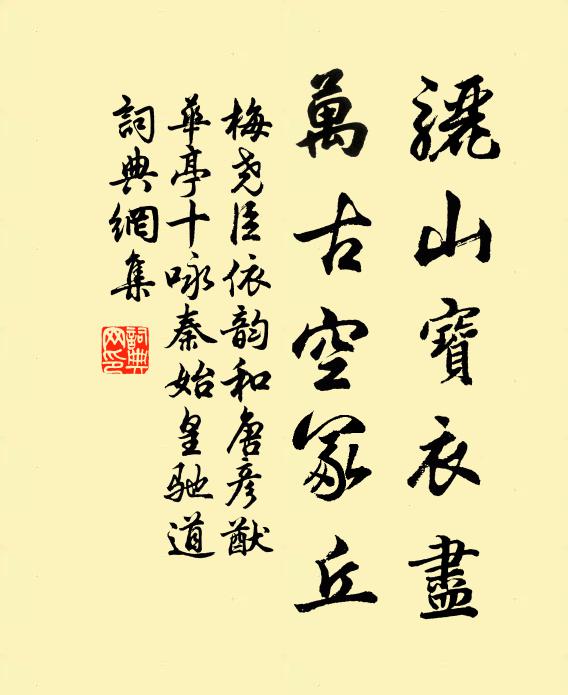 驪山寶衣盡
萬古空冢丘
梅尧臣依韵和唐彦猷
華亭十咏秦始皇馳道
詞典網集
詞典网印